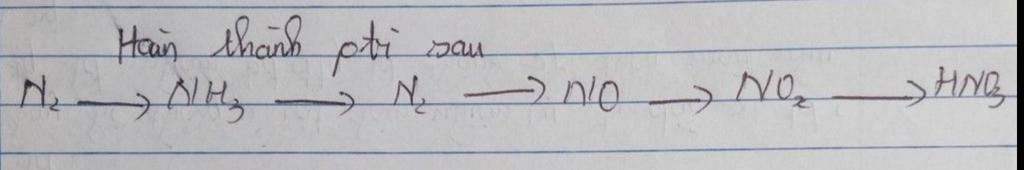 Hoàn thành pti sau
N₂ → NH₃ → N₂ → NO → NO₂ → HNO₃